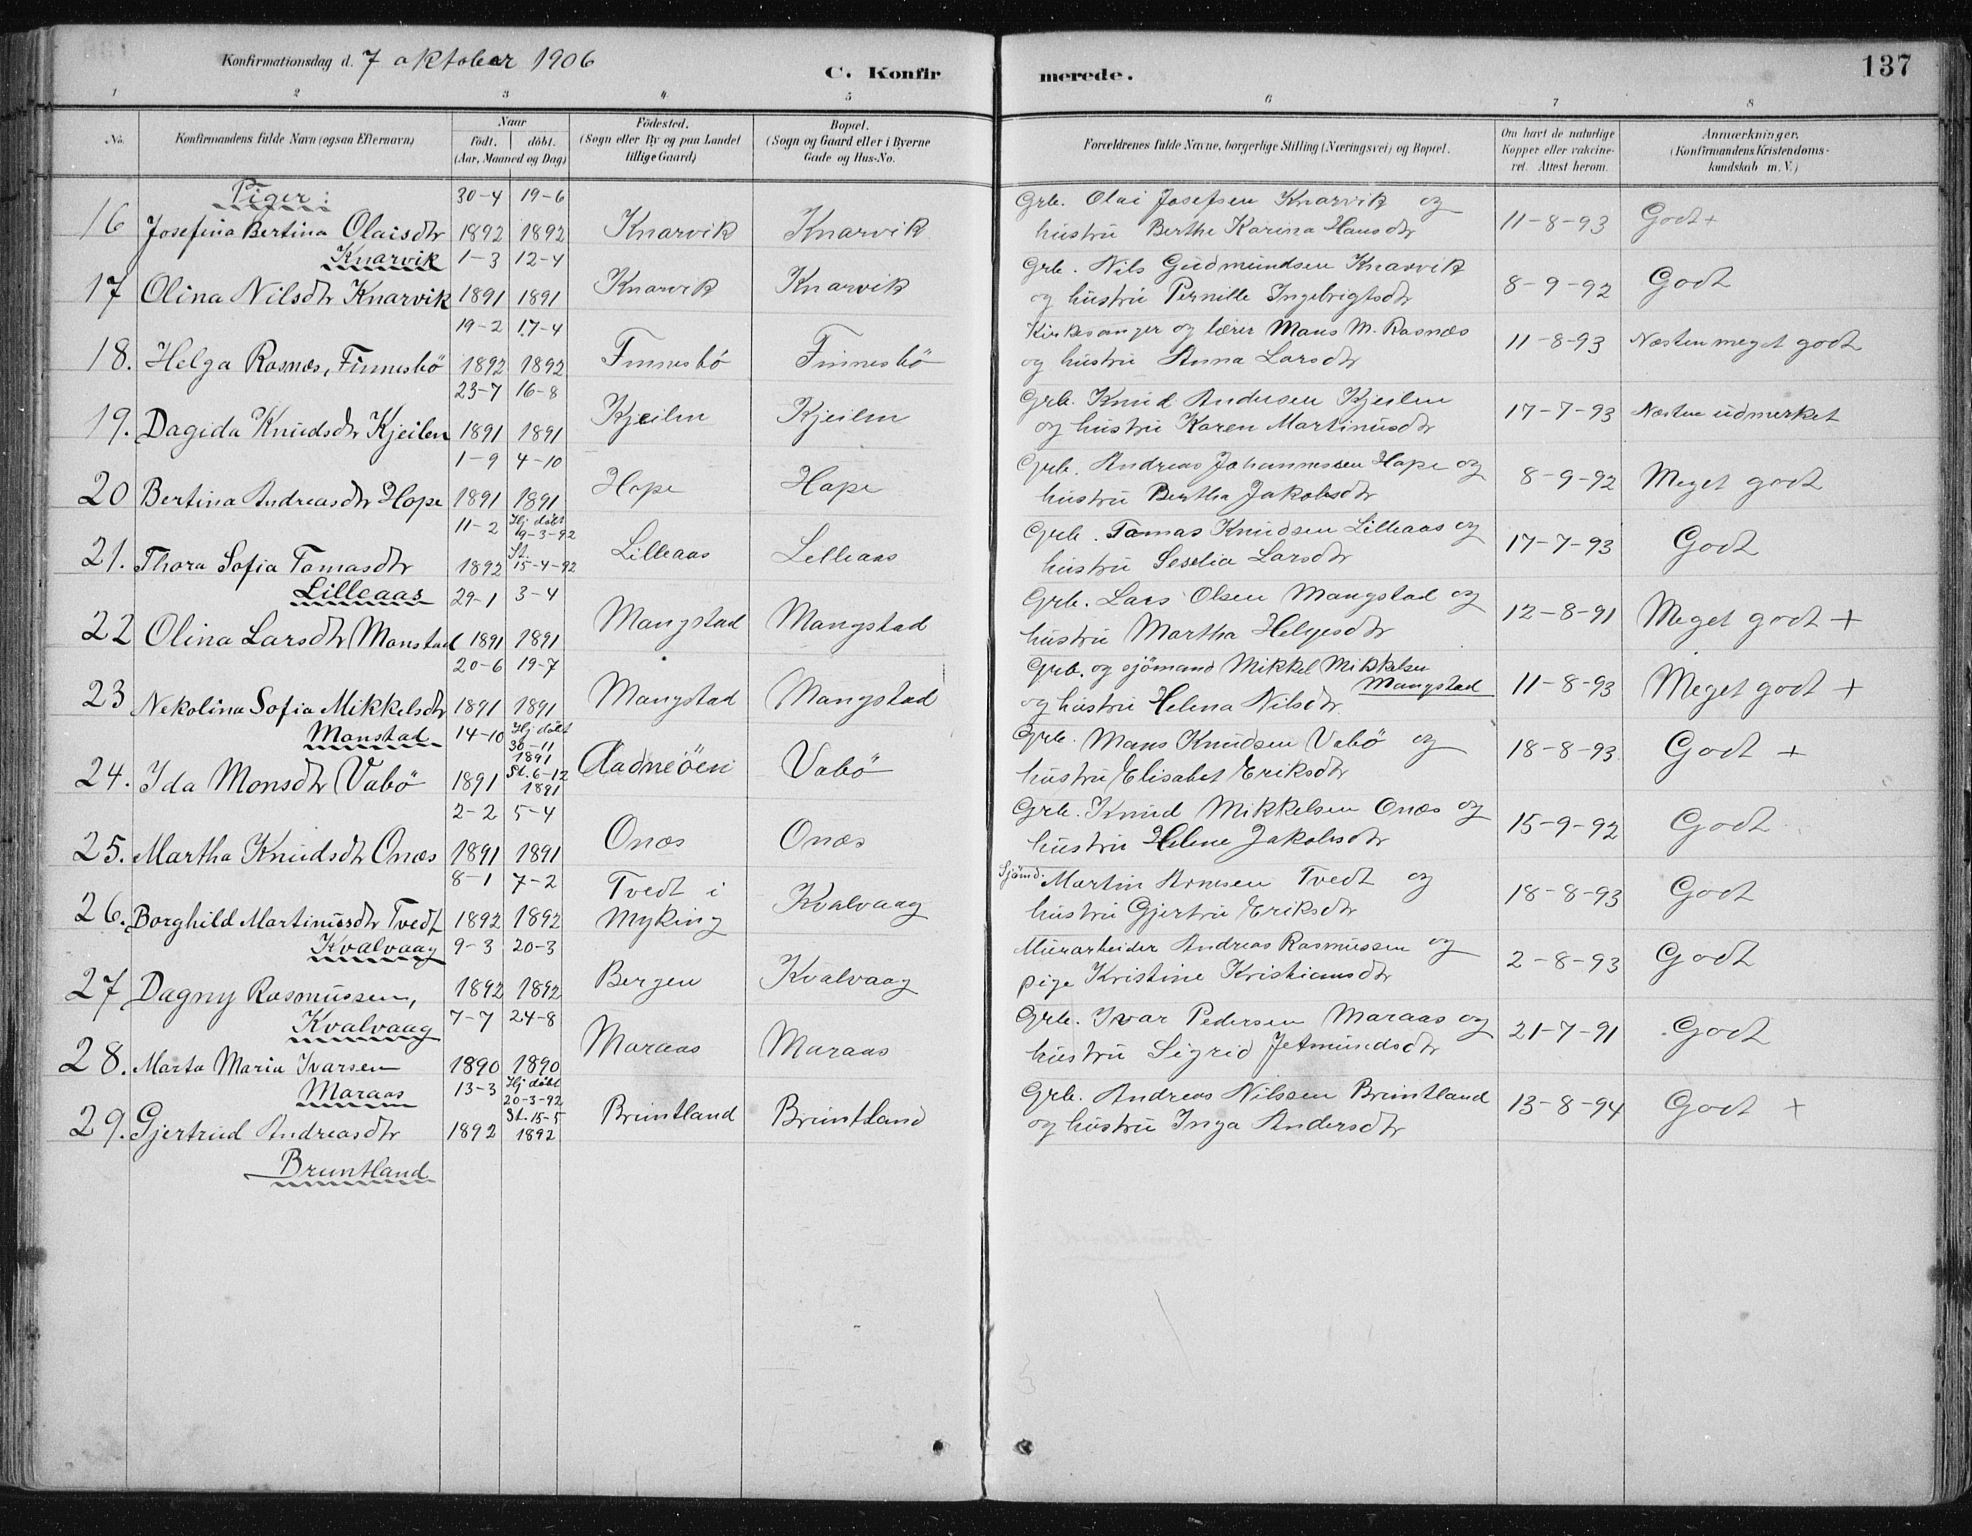 Konfirmationsdag d. 7 oktober 1906
C. Konfirmerede.
137
1 2 3 4 5 6 7 8
No. Konfirmandens fulde Navn (ogsaa Efternavn) Naar födt. döbt. (Aar, Maaned og Dag) Födested. (Sogn eller By og paa Landet tillige Gaard) Bopæl. (Sogn og Gaard eller i Byerne Gade og Hus-No. Forældrenes fulde Navne, borgerlige Stilling (Næringsvei) og Bopæl. Om havt de naturlige Kopper eller vakcineret. Attest herom. Anmærkninger. (Konfirmandens Kristendomskundskab m. V.)
Piger:
30-4 19-6 Grb. Olai Josefsen Knarvik og
16 Josefina Bertina Olaisdtr 1892 1892 Knarvik Knarvik hustru Berthe Karina Hansdtr 11-8-93 Godt +
Knarvik
1-3 12-4 Grb. Nils Gudmundsen Knarvik
17 Olina Nilsdtr Knarvik 1891 1891 Knarvik Knarvik og hustru Pernille Ingebrigtsdtr 8-9-92 Godt
19-2 17-4 Kirkesanger og lærer Mans M. Rasnæs
18. Helga Rasnæs, Finnesbö 1892 1892 Finnesbö Finnesbö og hustru Anna Larsdtr 11-8-93 Næsten meget godt
23-7 16-8 Grb. Knud Andersen Kjeilen
19. Dagida Knudsdtr Kjeilen 1891 1891 Kjeilen Kjeilen og hustru Karen Martinusdtr 17-7-93 Næsten udmerket
1-9 4-10 Grb. Andreas Johannessen Hope og
20 Bertina Andreasdtr Hope 1891 1891 Hope Hope hustru Bertha Jakobsdtr 8-9-92 Meget godt
11-2 Hj döbt 19-3-92 Grb. Tomas Knudsen Lilleaas og
21. Thora Sofia Tomasdtr 1892 St. 15-4-92 Lilleaas Lilleaas hustru Seselia Larsdtr 17-7-93 Godt
Lilleaas
29-1 3-4 Grb. Lars Olsen Mangstad og
22 Olina Larsdtr Monstad 1891 1891 Mangstad Mangstad hustru Martha Helgesdtr 12-8-91 Meget godt +
20-6 19-7 Grb. og sjömand Mikkel Mikkelsen Mangstad
23 Nekolina Sofia Mikkelsdtr 1891 1891 Mangstad Mangstad og hustru Helena Nilsdtr 11-8-93 Meget godt +
Monstad
14-10 Hj döbt 30-11 1891 Grb. Mans Knudsen Vabö og
24. Ida Monsdtr Vabö 1891 St. 6-12 1891 Aadneöen Vabö hustru Elisabet Eriksdtr 18-8-93 Godt +
2-2 5-4 Grb. Knud Mikkelsen Onæs og
25. Martha Knudsdtr Onæs 1891 1891 Onæs Onæs hustru Helene Jakobsdtr 15-9-92 Godt
8-1 7-2 Tvedt i Sjömd. Martin Arnesen Tvedt og
26. Borghild Martinusdtr Tvedt 1892 1892 Myking Kvalvaag hustru Gjertru Eriksdtr 18-8-93 Godt
Kvalvaag
9-3 20-3 Murarbeider Andreas Rasmussen og
27 Dagny Rasmussen, 1892 1892 Bergen Kvalvaag pige Kristine Kristiansdtr 2-8-93 Godt
Kvalvaag
7-7 24-8 Grb. Ivar Pedersen Maraas og
28. Marta Maria Ivarsen 1890 1890 Maraas Maraas hustru Sigrid Jetmundsdtr 21-7-91 Godt
Maraas
13-3 Hj döbt 20-3-92 Grb. Andreas Nilssen Bruntland
29. Gjertrud Andreasdtr 1892 St. 15-5 1892 Bruntland Bruntland og hustru Inga Andersdtr 13-8-94 Godt +
Bruntland